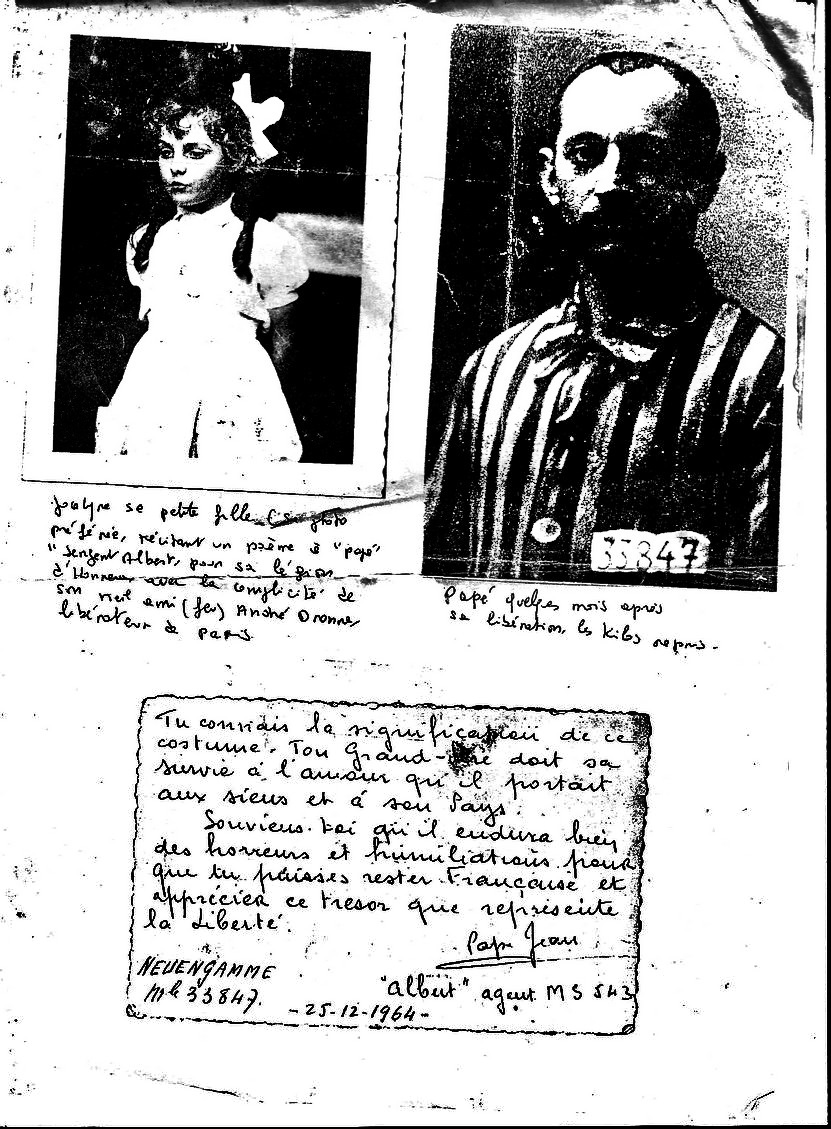 33847
Joëlyne sa petite fille (sa photo
préférée, récitant un poème à "papé"
"Sergent Albert, pour sa légion
d'Honneur avec la complicité de
son vieil ami (feu) André Dronne,
libérateur de Paris
Papé quelques mois après
sa libération, les kilos repris.
Tu connais la signification de ce
costume. Ton Grand-Père doit sa
survie à l'amour qu'il portait
aux siens et à son Pays.
Souviens-toi qu'il endura bien
des horreurs et humiliations pour
que tu puisses rester Française et
apprécier ce trésor que représente
la Liberté.
Papé Jean
NEUENGAMME
Mle 33847.
"Albert" agent MS 543
-25-12-1964-